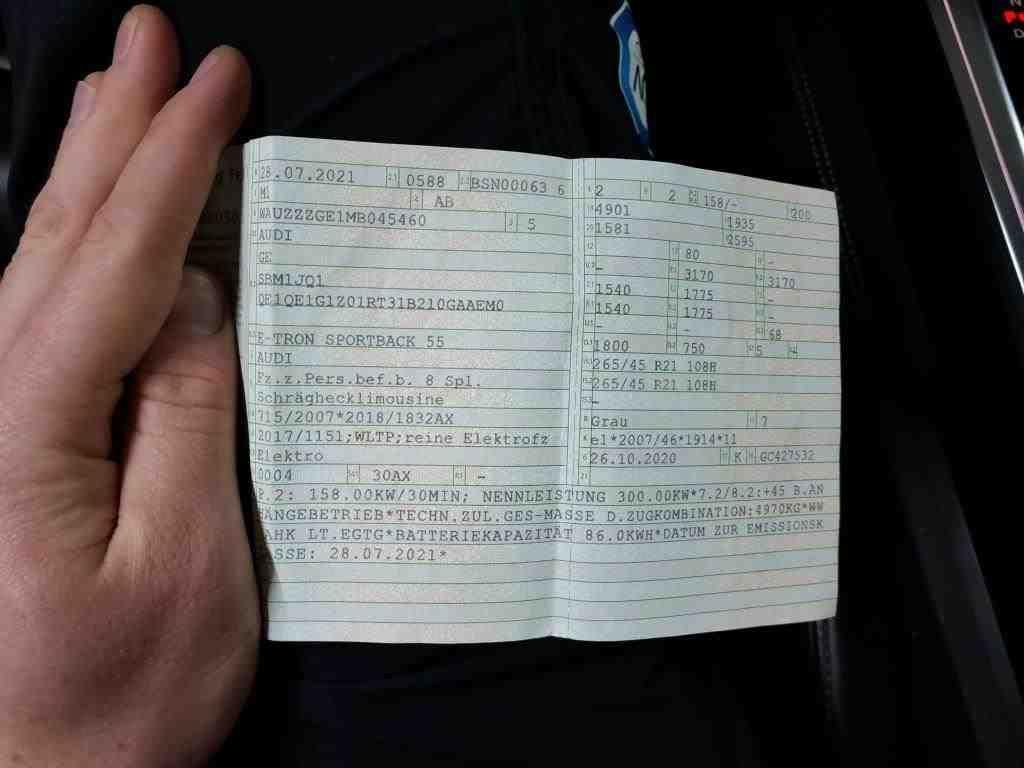 28.07.2021 0588 BSN00063 6
M1 AB
WAUZZZGE1MB045460 5
AUDI
GE
SBM1JQ1
QE1QE1G1Z01RT31B210GAAEM0
E-TRON SPORTBACK 55
AUDI
Fz.z.Pers.bef.b. 8 Spl.
Schräghecklimousine
715/2007*2018/1832AX
2017/1151;WLTP;reine Elektrofz
Elektro
0004 30AX -
2 2 158/- 200
4901 1935
1581 2595
- 80 -
- 3170 3170
1540 1775 -
1540 1775 -
- - 68
1800 750 5
265/45 R21 108H
265/45 R21 108H
-
Grau 7
e1*2007/46*1914*11
26.10.2020 K GC427532
P.2: 158.00KW/30MIN; NENNLEISTUNG 300.00KW*7.2/8.2:+45 B.AN
HÄNGEBETRIEB*TECHN.ZUL.GES-MASSE D.ZUGKOMBINATION:4970KG*WW
AHK LT.EGTG*BATTERIEKAPAZITÄT 86.0KWH*DATUM ZUR EMISSIONSK
ASSE: 28.07.2021*